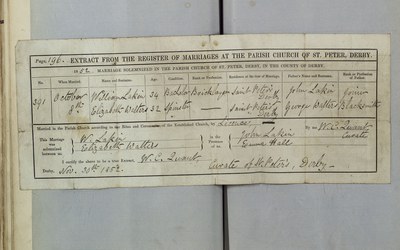 Page, 196. EXTRACT FROM THE REGISTER OF MARRIAGES AT THE PARISH CHURCH OF ST. PETER, DERBY.
1852. MARRIAGE SOLEMNIZED IN THE PARISH CHURCH OF ST. PETER, DERBY, IN THE COUNTY OF DERBY.
No. When Married. Names and Surnames. Age. Condition. Rank or Profession. Residence at the time of Marriage. Father's Name and Surname. Rank or Profession of Father.
391 October William Lakin 34 Bachelor Bricklayer Saint Peter's John Lakin Joiner
8th Elizabeth Walters 32 Spinster — Saint Peter's Derby George Walters Blacksmith
Married in the Parish Church according to the Rites and Ceremonies of the Established Church, by License by me W. C. Quant Curate
This Marriage was solemnized between us W. Lakin Elizabeth Walters in the Presence of us John Lakin Hall
I certify the above to be a true Extract, W. C. Quant. Curate of St. Peter's, Derby
Date, Nov. 30th 1852.